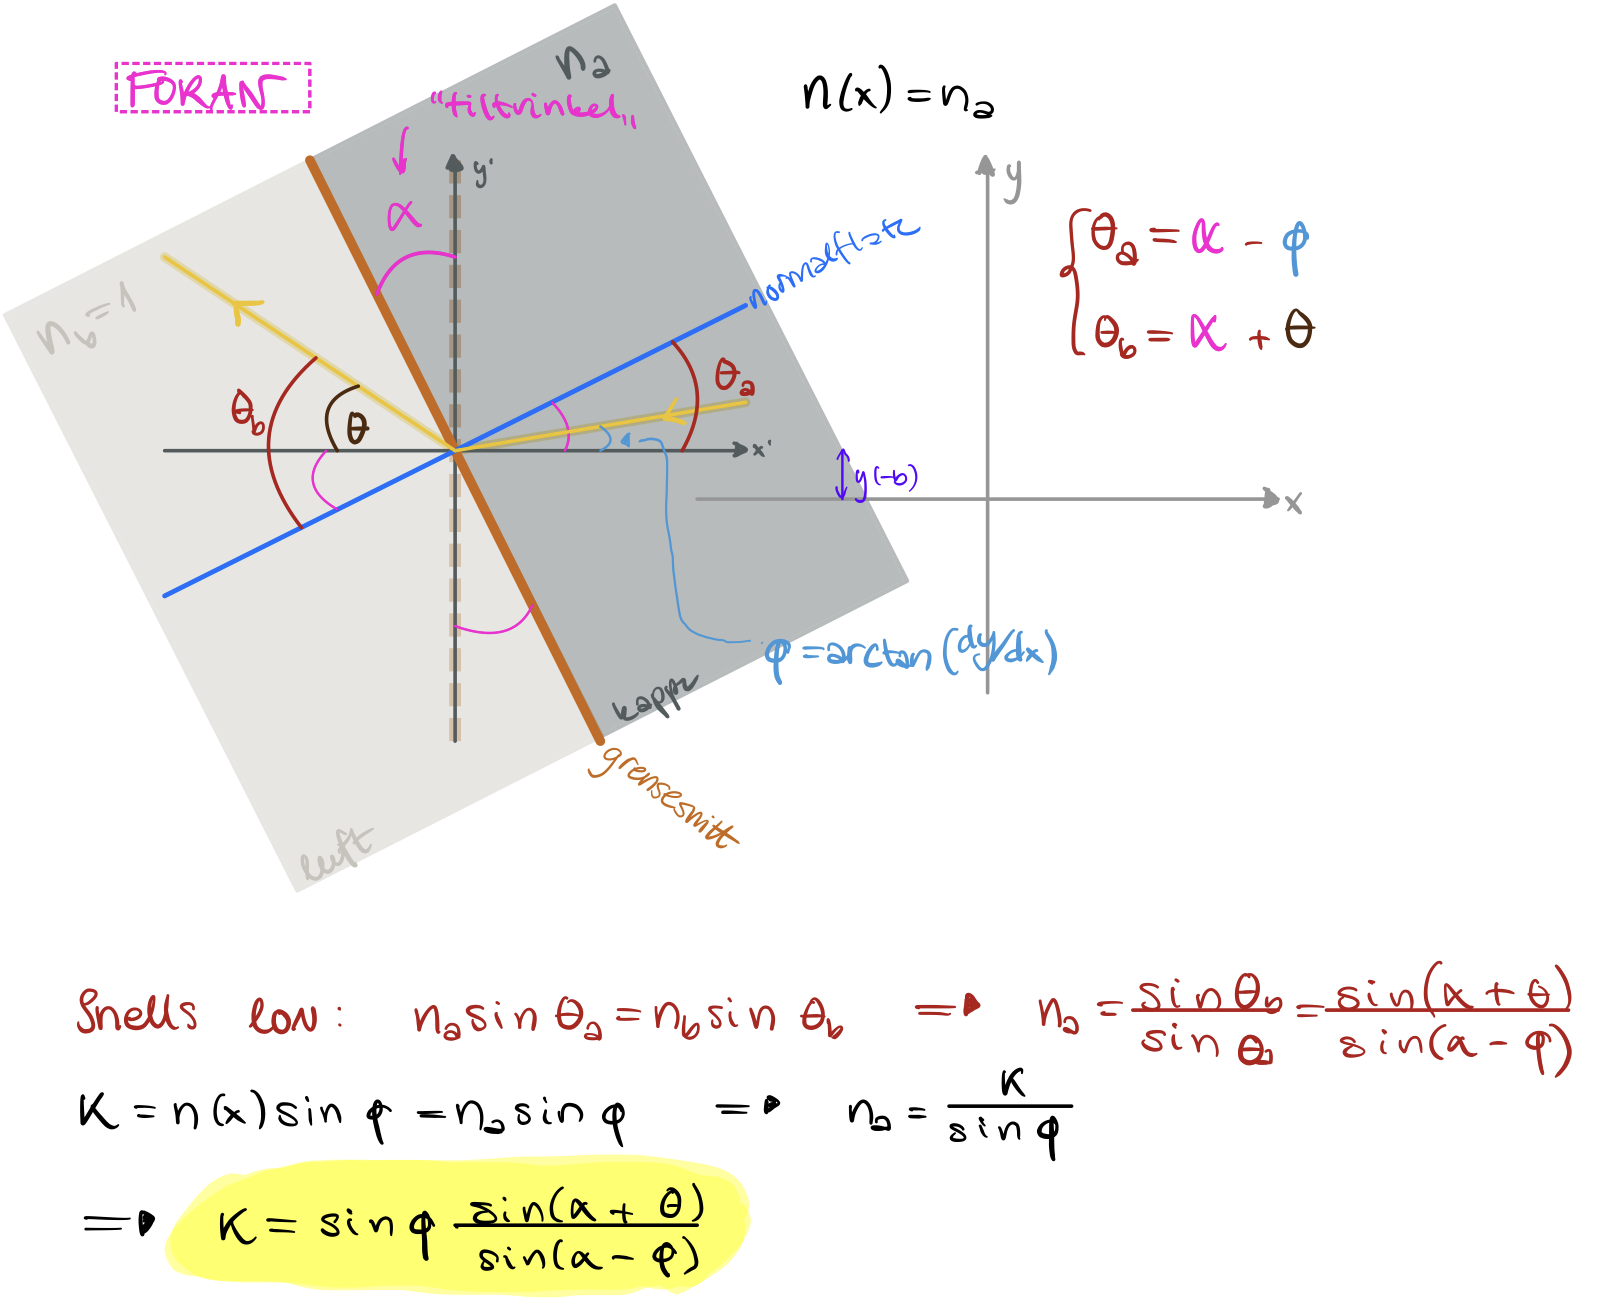 FORAN
n_a
"tiltvinkel"
n(x) = n_a
y'
y
α
normalflate
n_b = 1
θ_a = α - φ
θ_b = α + θ
θ_a
θ_b
θ
x'
y(-b)
x
φ = arctan(dy/dx)
kappe
grensesnitt
luft
Snells lov: n_a sin θ_a = n_b sin θ_b ⇒ n_a = sin θ_b / sin θ_a = sin(α + θ) / sin(α - φ)
K = n(x) sin φ = n_a sin φ ⇒ n_a = K / sin φ
⇒ K = sin φ sin(α + θ) / sin(α - φ)